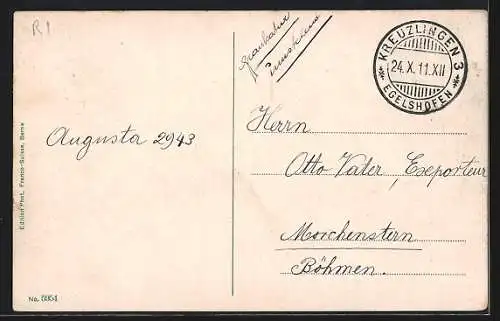 R1
KREUZLINGEN 3
24.X.11.XII
EGELSHOFEN
Herrn
Augusta 2943
Otto Vater, Exeporteur
Morchenstern
Böhmen.
Edition Phot. Franco-Suisse, Berne
No.